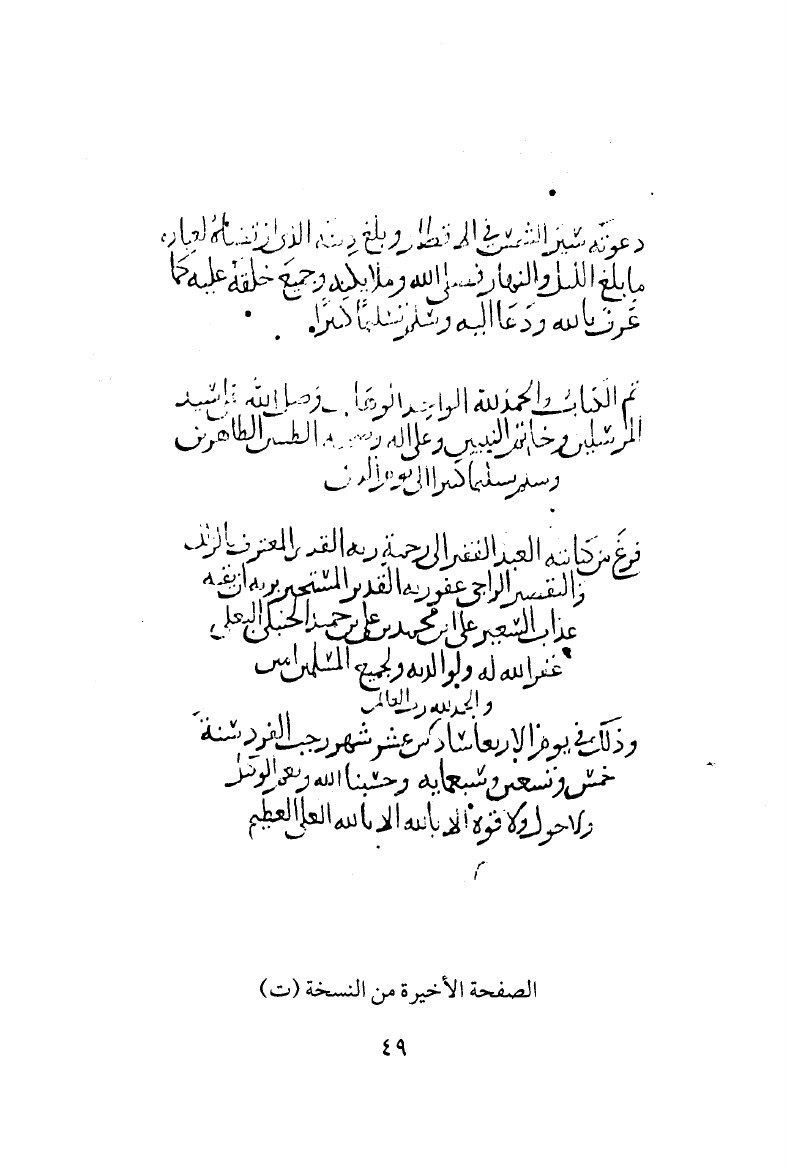 دعوته سير الشمس في الاقطار وبلغ دينه الذي ارتضاه لعباده
ما بلغ الليل والنهار فصلى الله وملايكته وجميع خلقه عليه كما
عرف بالله ودعا اليه وسلم تسليما كثيرا
تم الكتاب والحمد لله الواحد الوهاب وصلى الله على سيد
المرسلين وخاتم النبيين وعلى اله وصحبه الطيبين الطاهرين
وسلم تسليما كثيرا الى يوم الدين
فرغ من كتابته العبد الفقير الى رحمة ربه القدير المعترف بالزلل
والتقصير الراجي عفو ربه القدير المستجير بربه ان يقيه
عذاب السعير علي ابن محمد بن علي بن حميد الحنبلي البعلي
غفر الله له ولوالديه ولجميع المسلمين امين
والحمد لله رب العالمين
وذلك في يوم الاربعا سادس عشر شهر رجب الفرد سنة
خمس وتسعين وسبعمايه وحسبنا الله ونعم الوكيل
ولا حول ولا قوة الا بالله الا بالله العلي العظيم
الصفحة الأخيرة من النسخة (ت)
٤٩